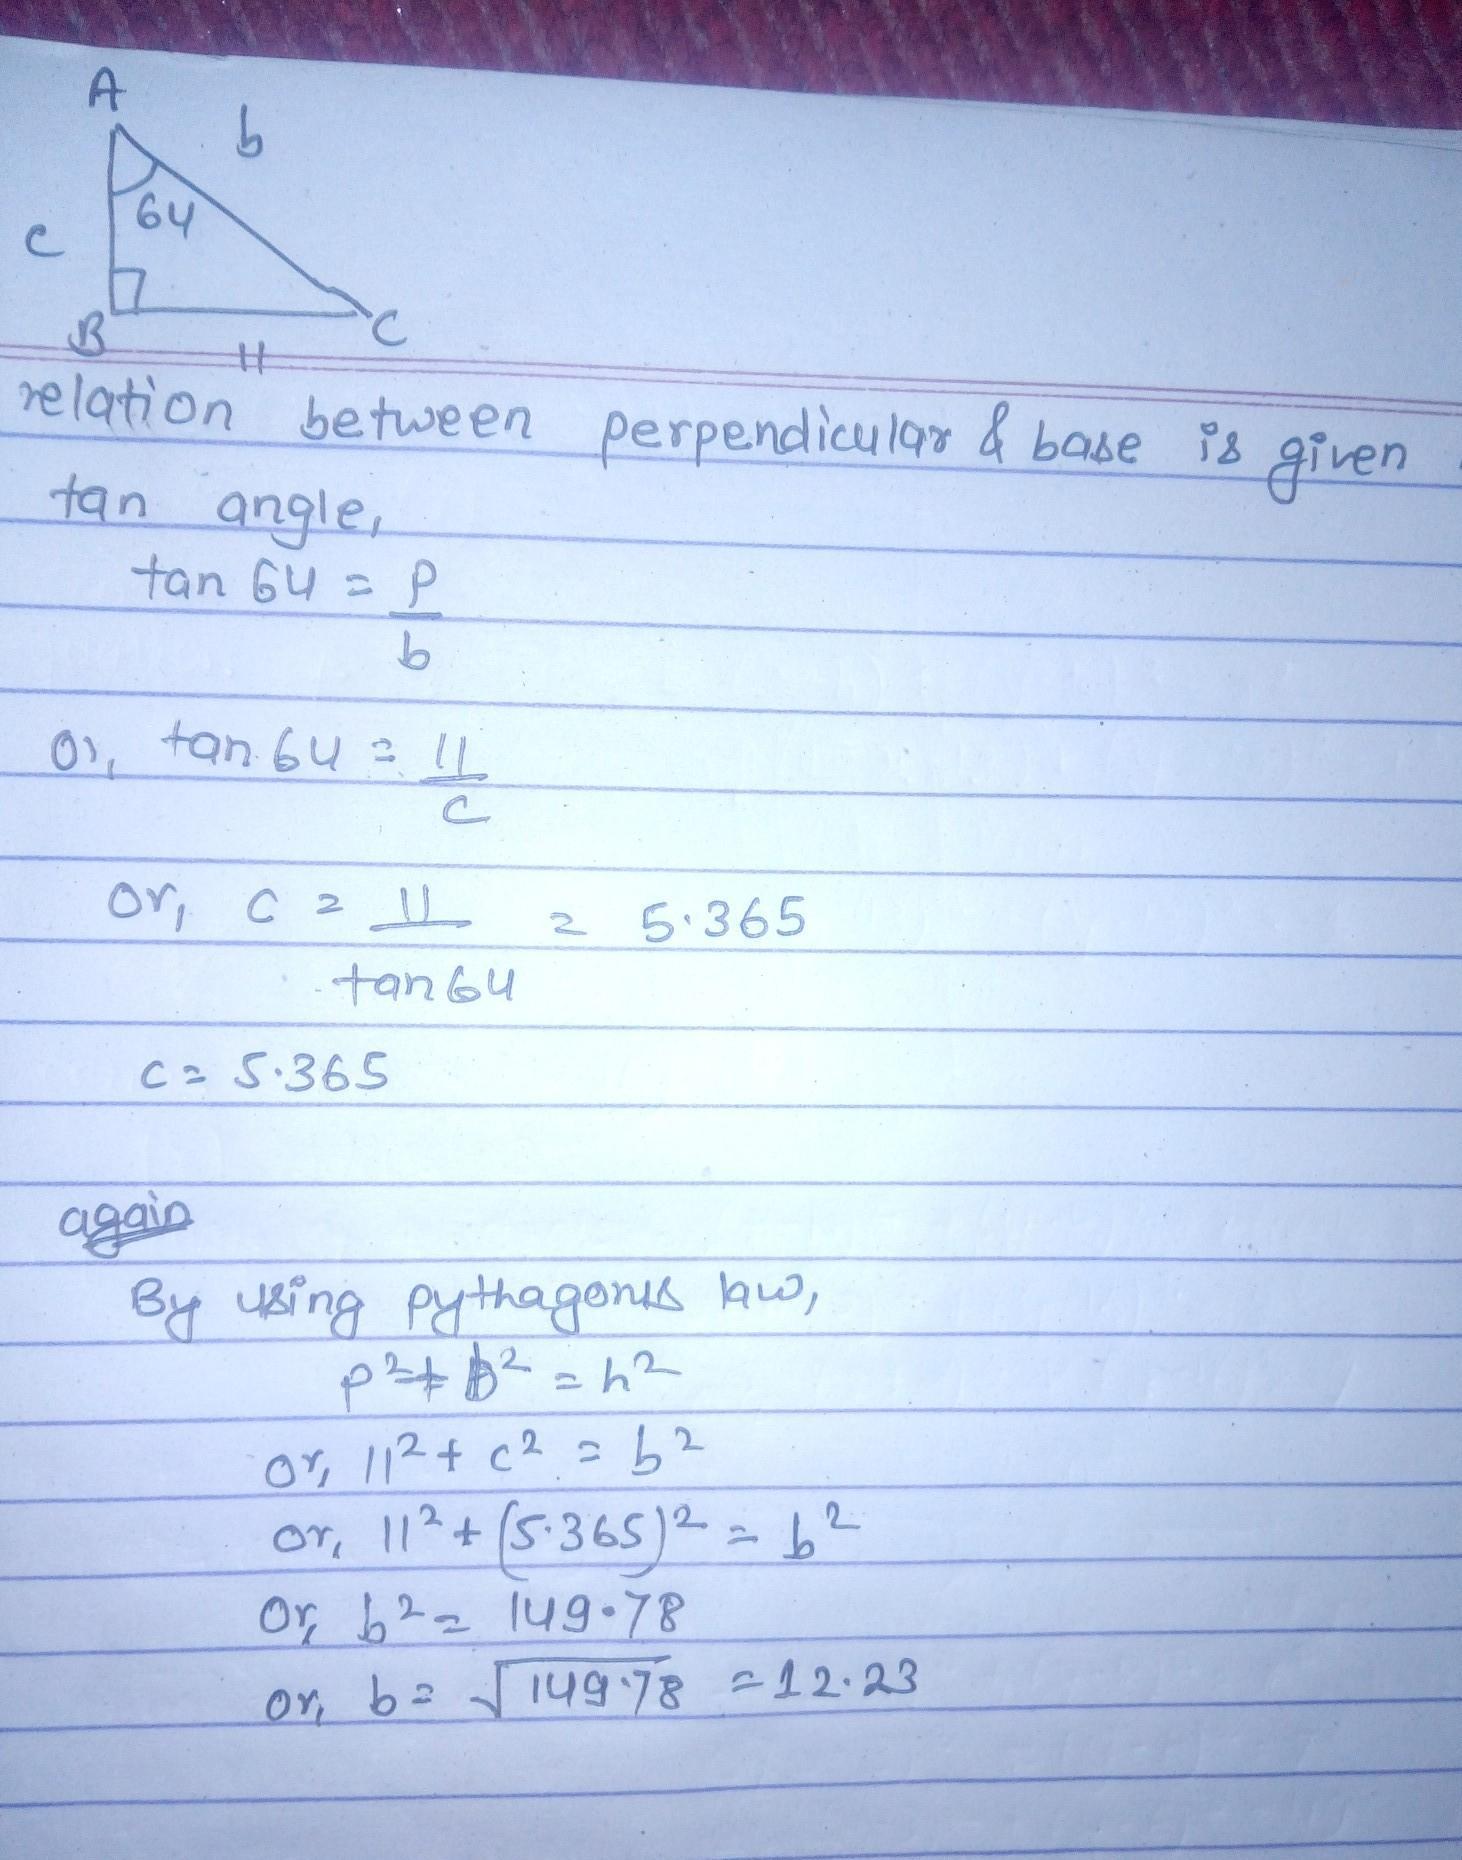 A
b
64
c
B
11
C
relation between perpendicular & base is given
tan angle,
tan 64 = p
b
or, tan 64 = 11
c
or, c = 11 = 5.365
tan 64
c = 5.365
again
By using pythagorus law,
p² + b² = h²
or, 11² + c² = b²
or, 11² + (5.365)² = b²
or, b² = 149.78
or, b = √149.78 = 12.23